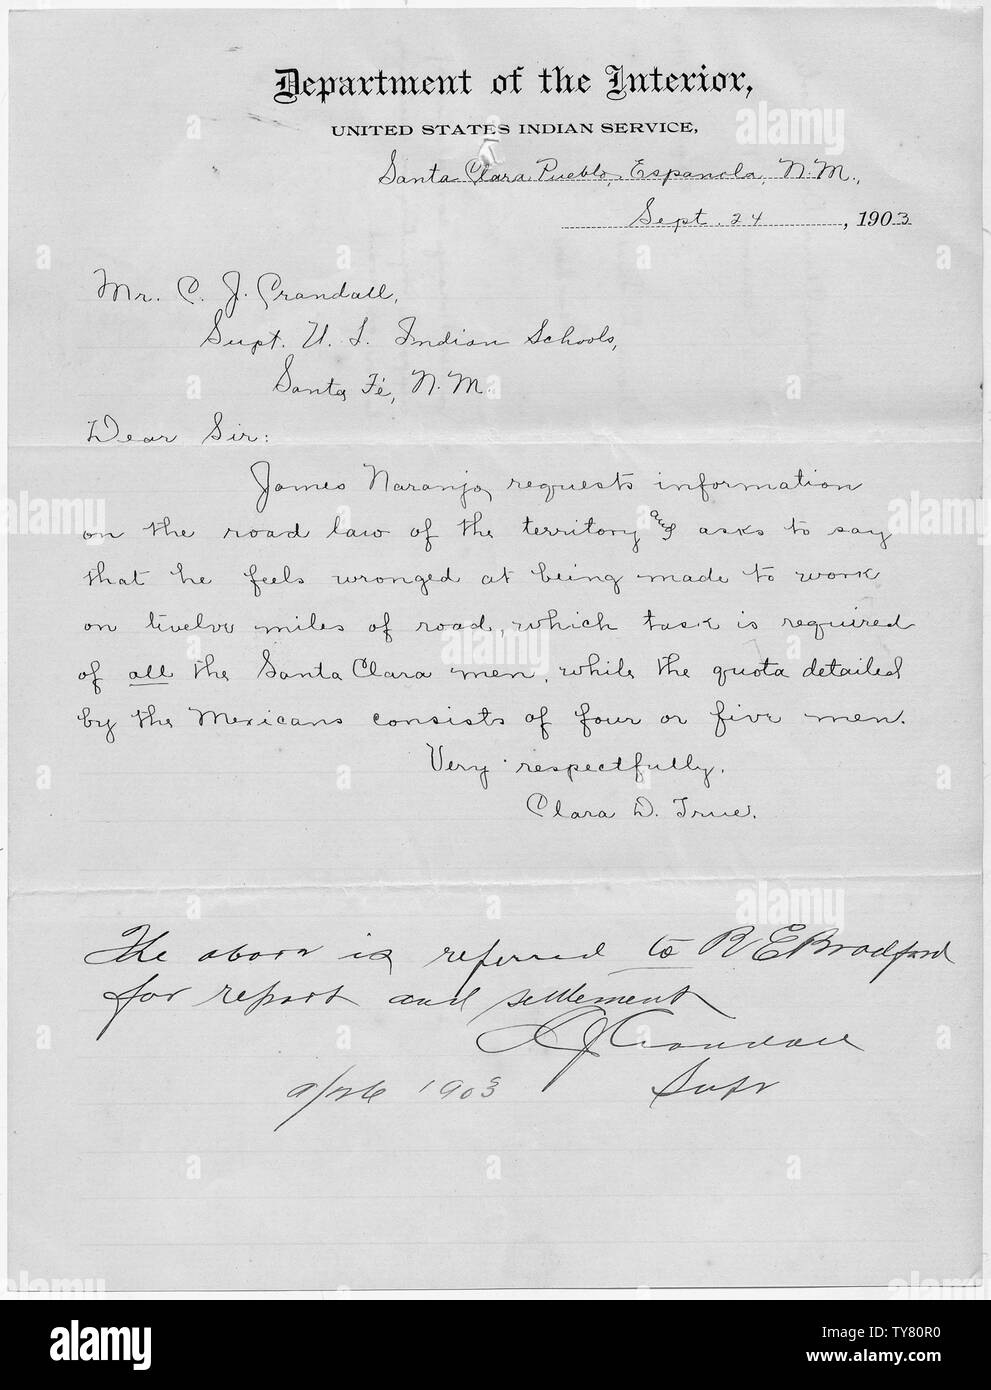 Department of the Interior,
UNITED STATES INDIAN SERVICE,
Santa Clara Pueblo, Espanola, N.M.,
Sept. 24, 1903
Mr. C. J. Crandall,
Supt. U. S. Indian Schools,
Santa Fé, N.M.
Dear Sir:
James Naranjo requests information
on the road law of the territory and asks to say
that he feels wronged at being made to work
on twelve miles of road, which task is required
of all the Santa Clara men, while the quota detailed
by the Mexicans consists of four or five men.
Very respectfully,
Clara D. True.
The above is referred to R E Bradford
for report and settlement
C J Crandall
9/26 1903 Supt
alamy
Image ID: TY80R0
www.alamy.com